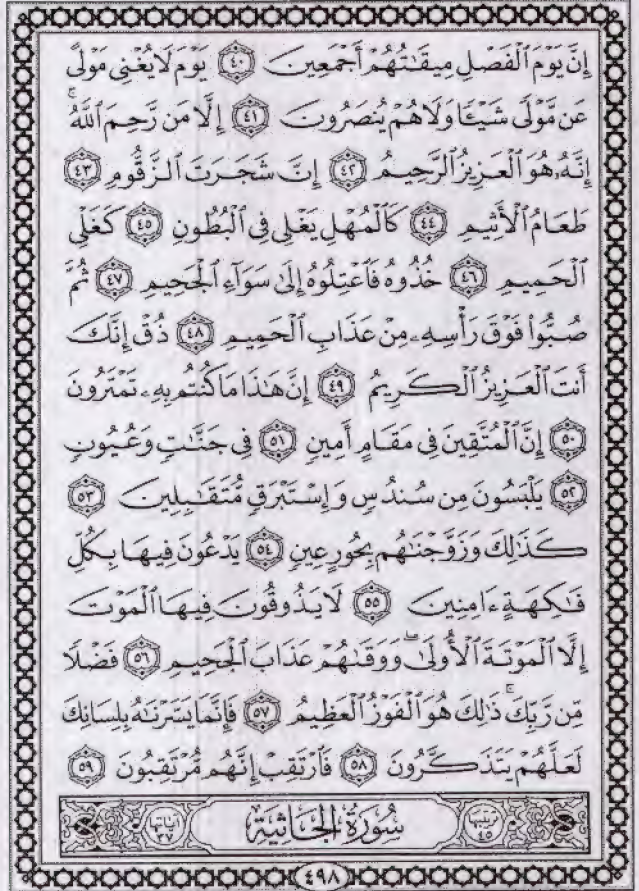 إِنَّ يَوْمَ ٱلْفَصْلِ مِيقَٰتُهُمْ أَجْمَعِينَ ٤٠ يَوْمَ لَا يُغْنِى مَوْلًى
عَن مَّوْلًى شَيْـًٔا وَلَا هُمْ يُنصَرُونَ ٤١ إِلَّا مَن رَّحِمَ ٱللَّهُ ۚ
إِنَّهُۥ هُوَ ٱلْعَزِيزُ ٱلرَّحِيمُ ٤٢ إِنَّ شَجَرَتَ ٱلزَّقُّومِ ٤٣
طَعَامُ ٱلْأَثِيمِ ٤٤ كَٱلْمُهْلِ يَغْلِى فِى ٱلْبُطُونِ ٤٥ كَغَلْىِ
ٱلْحَمِيمِ ٤٦ خُذُوهُ فَٱعْتِلُوهُ إِلَىٰ سَوَآءِ ٱلْجَحِيمِ ٤٧ ثُمَّ
صُبُّوا۟ فَوْقَ رَأْسِهِۦ مِنْ عَذَابِ ٱلْحَمِيمِ ٤٨ ذُقْ إِنَّكَ
أَنتَ ٱلْعَزِيزُ ٱلْكَرِيمُ ٤٩ إِنَّ هَٰذَا مَا كُنتُم بِهِۦ تَمْتَرُونَ
٥٠ إِنَّ ٱلْمُتَّقِينَ فِى مَقَامٍ أَمِينٍ ٥١ فِى جَنَّٰتٍ وَعُيُونٍ
٥٢ يَلْبَسُونَ مِن سُندُسٍ وَإِسْتَبْرَقٍ مُّتَقَٰبِلِينَ ٥٣
كَذَٰلِكَ وَزَوَّجْنَٰهُم بِحُورٍ عِينٍ ٥٤ يَدْعُونَ فِيهَا بِكُلِّ
فَٰكِهَةٍ ءَامِنِينَ ٥٥ لَا يَذُوقُونَ فِيهَا ٱلْمَوْتَ
إِلَّا ٱلْمَوْتَةَ ٱلْأُولَىٰ ۖ وَوَقَىٰهُمْ عَذَابَ ٱلْجَحِيمِ ٥٦ فَضْلًا
مِّن رَّبِّكَ ۚ ذَٰلِكَ هُوَ ٱلْفَوْزُ ٱلْعَظِيمُ ٥٧ فَإِنَّمَا يَسَّرْنَٰهُ بِلِسَانِكَ
لَعَلَّهُمْ يَتَذَكَّرُونَ ٥٨ فَٱرْتَقِبْ إِنَّهُم مُّرْتَقِبُونَ ٥٩
ترتيبها ٤٥ سُورَةُ الجَاثِيَةِ آياتها ٣٧
٤٩٨